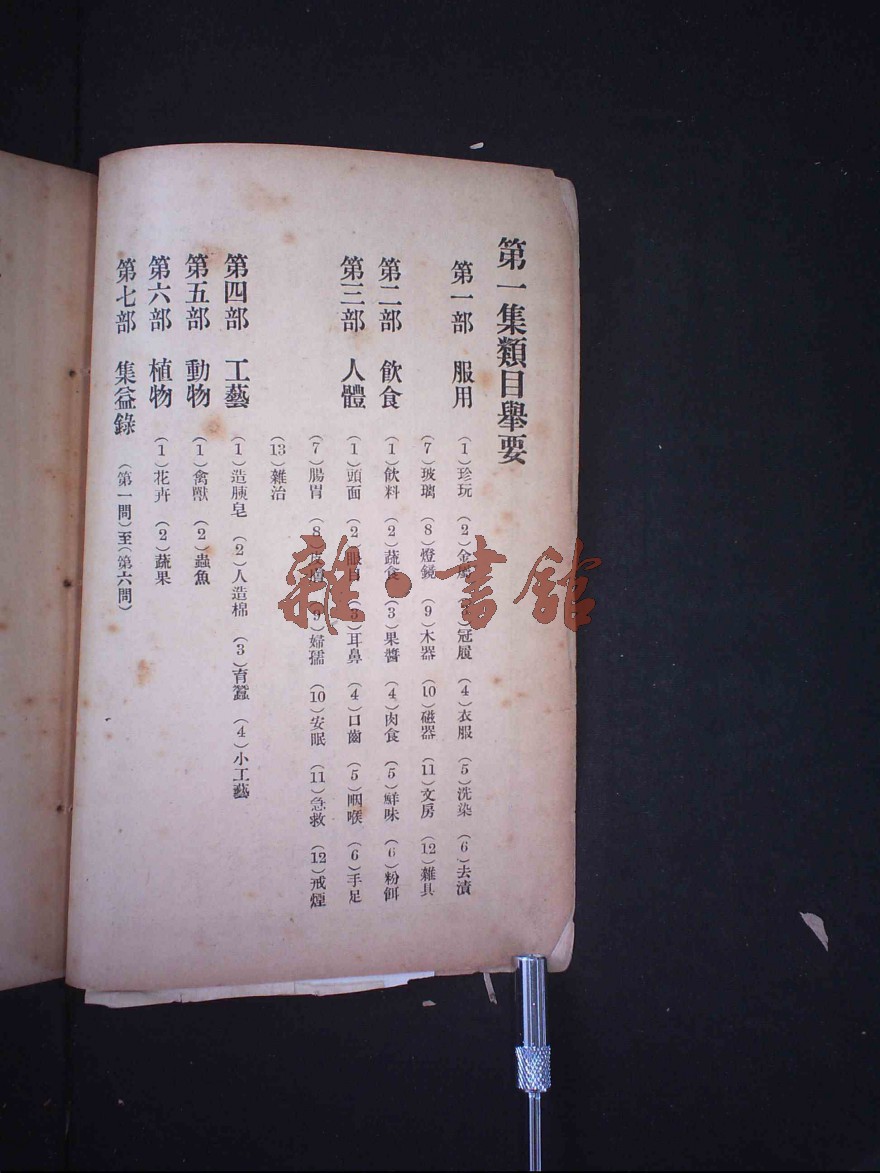 第一集類目舉要
第一部 服用 (1)珍玩 (2)金屬 (3)冠履 (4)衣服 (5)洗染 (6)去漬
(7)玻璃 (8)燈鏡 (9)木器 (10)磁器 (11)文房 (12)雜具
第二部 飲食 (1)飲料 (2)蔬食 (3)果醬 (4)肉食 (5)鮮味 (6)粉餌
第三部 人體 (1)頭面 (2)眼目 (3)耳鼻 (4)口齒 (5)咽喉 (6)手足
(7)腸胃 (8) (9)婦孺 (10)安眠 (11)急救 (12)戒煙
(13)雜治
第四部 工藝 (1)造胰皂 (2)人造棉 (3)育蠶 (4)小工藝
第五部 動物 (1)禽獸 (2)蟲魚
第六部 植物 (1)花卉 (2)蔬果
第七部 集益錄 (第一問)至(第六問)
雜·書館